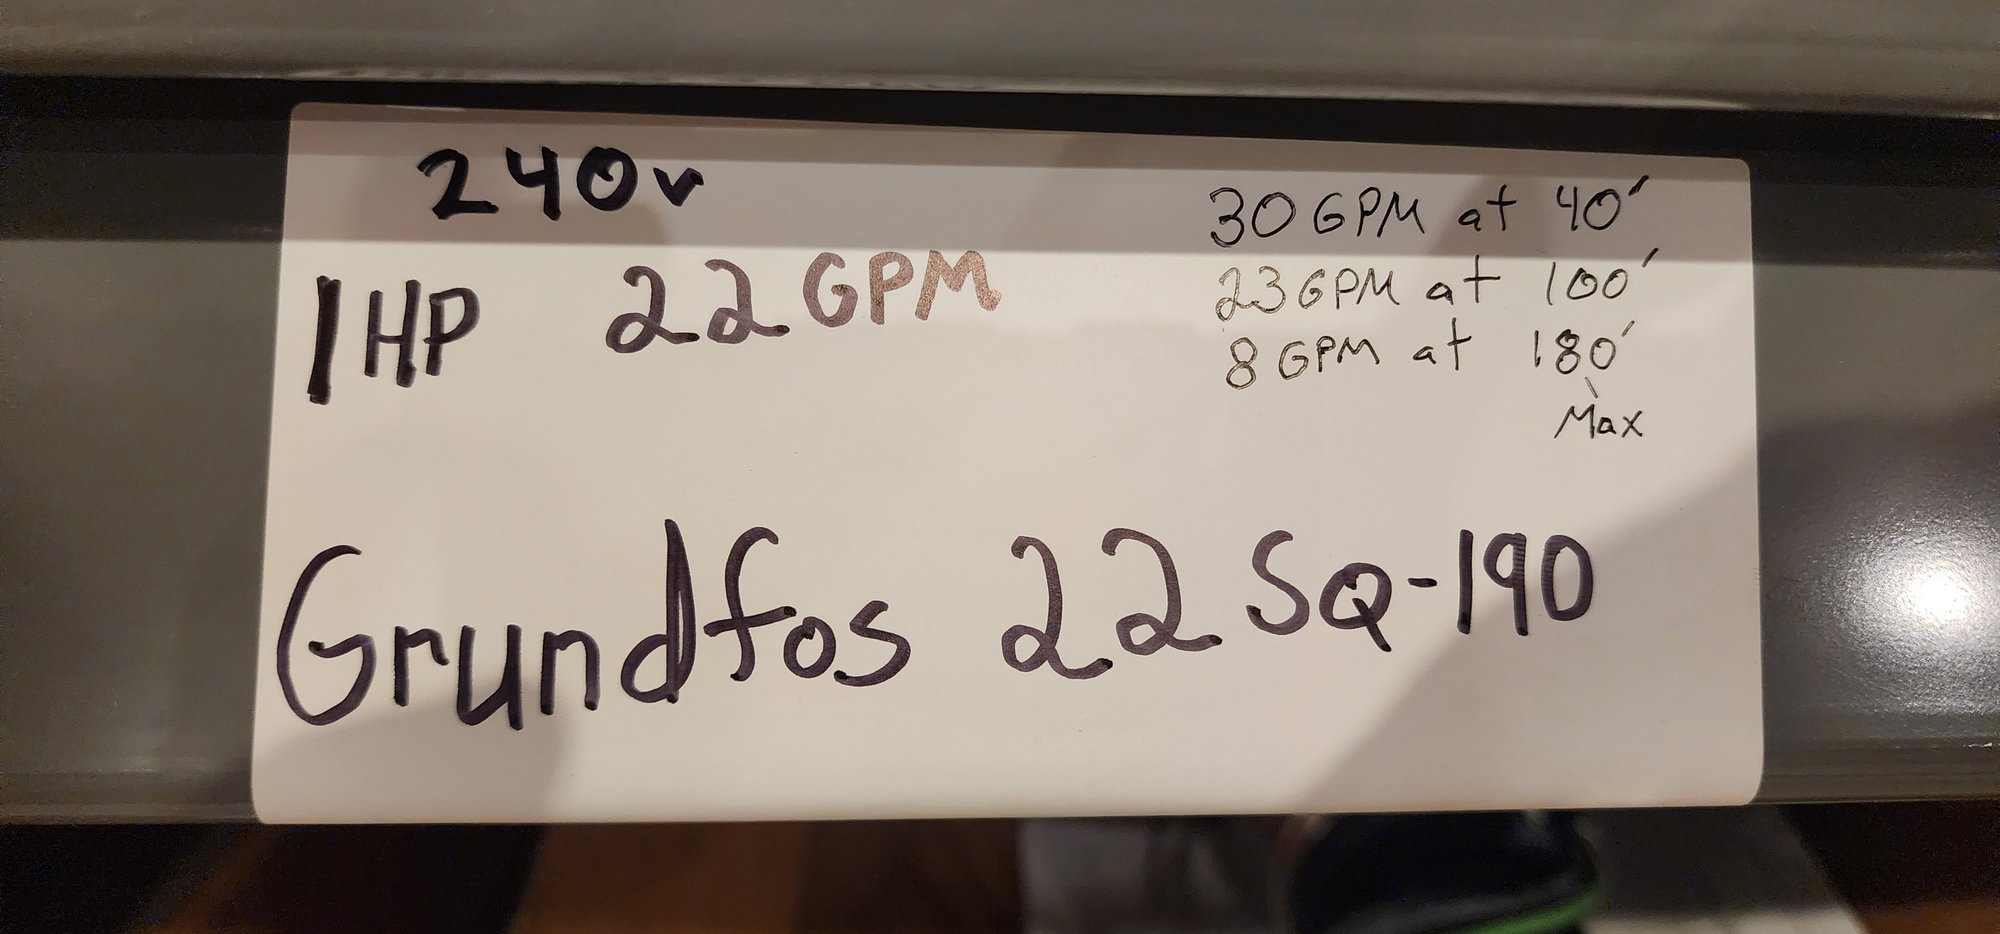 240v
1HP 22 GPM
30 GPM at 40'
23 GPM at 100'
8 GPM at 180'
Max
Grundfos 22 SQ-190